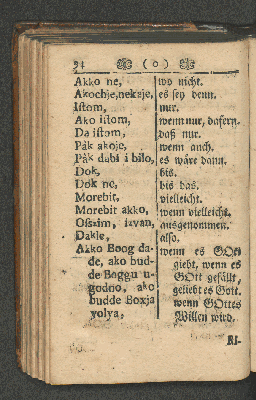 94 ( o )
Akko ne, wo nicht.
Akochje, nekeje, es sey denn.
Istom, nur.
Ako istom, wenn nur, dafern.
Da istom, daß nur.
Pák akoje, wenn auch.
Pák dabi i bilo, es wäre dann.
Dok, bis.
Dok ne, bis das.
Morebit, vielleicht.
Morebit akko, wenn vielleicht.
Osszim, izvan, ausgenommen.
Dakle, also.
Akko Boog da- wenn es GOtt
de, ako bud- giebt, wenn es
de Boggu u- GOtt gefällt,
godno, ako geliebt es Gott,
budde Boxja wenn GOttes
volya, Willen wird.
RI-